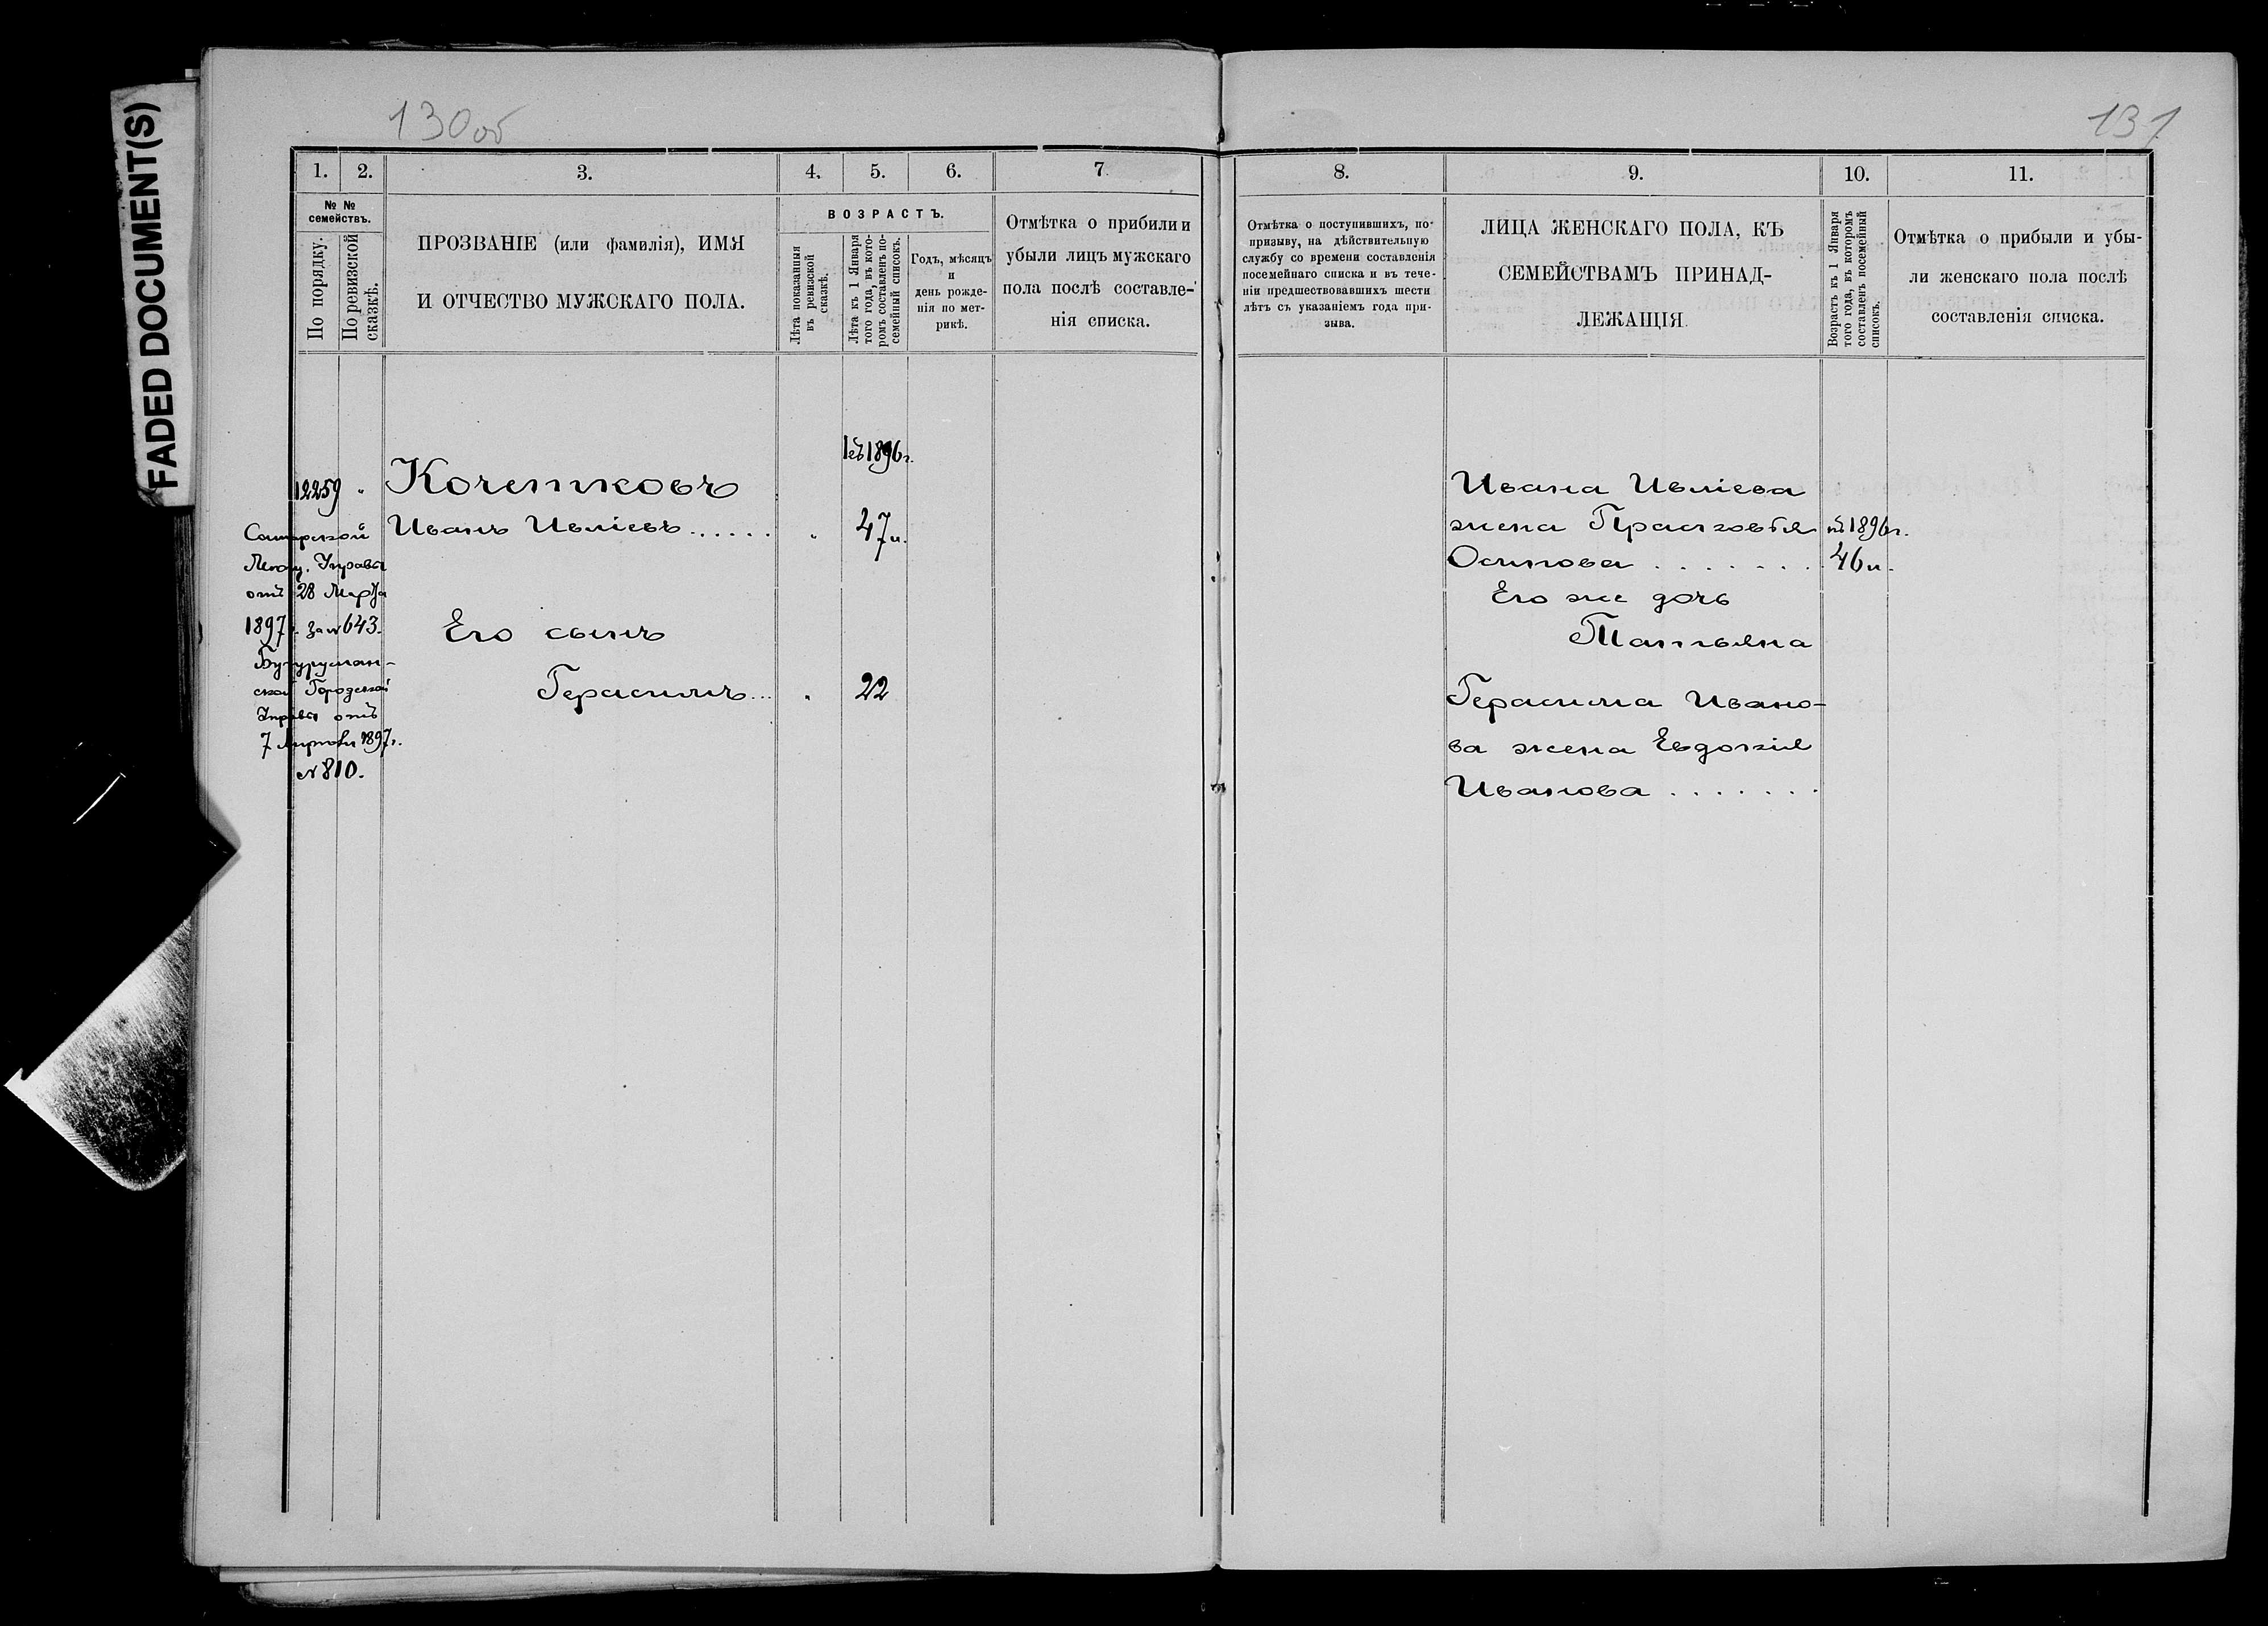 FADED DOCUMENT(S)
130об
1. 2. 3. 4. 5. 6. 7
№ №
семействъ.
По порядку.
По ревизской
сказкѣ.
ПРОЗВАНІЕ (или фамилія), ИМЯ
И ОТЧЕСТВО МУЖСКАГО ПОЛА.
ВОЗРАСТЪ.
Лѣта показанныя
въ ревизской
сказкѣ.
Лѣта къ 1 Января
того года, въ кото-
ромъ составленъ по-
семейный списокъ.
Годъ, мѣсяцъ
и
день рожде-
нія по мет-
рикѣ.
Отмѣтка о прибыли и
убыли лицъ мужскаго
пола послѣ составле-
нія списка.
къ 1896 г.
12259 " Кочетковъ
Иванъ Ивліевъ ...... " 47 л.
Самарской
Управы
отъ 28 Марта
1897 г. за № 643.
Бугуруслан-
ской Городской
Управы отъ
7 Апрѣля 1897 г.
№ 810.
Его сынъ
Герасимъ... " 22
131
8. 9. 10. 11.
Отмѣтка о поступившихъ, по
призыву, на дѣйствительную
службу со времени составленія
посемейнаго списка и въ тече-
ніи предшествовавшихъ шести
лѣтъ съ указаніемъ года при-
зыва.
ЛИЦА ЖЕНСКАГО ПОЛА, КЪ
СЕМЕЙСТВАМЪ ПРИНАД-
ЛЕЖАЩІЯ
Возрастъ къ 1 Января
того года, въ которомъ
составленъ посемейный
списокъ.
Отмѣтка о прибыли и убы-
ли женскаго пола послѣ
составленія списка.
Ивана Ивліева
жена Прасковья къ 1896 г.
Осипова ....... 46 л.
Его же дочь
Татьяна
Герасима Ивано-
ва жена Евдокія
Иванова .......